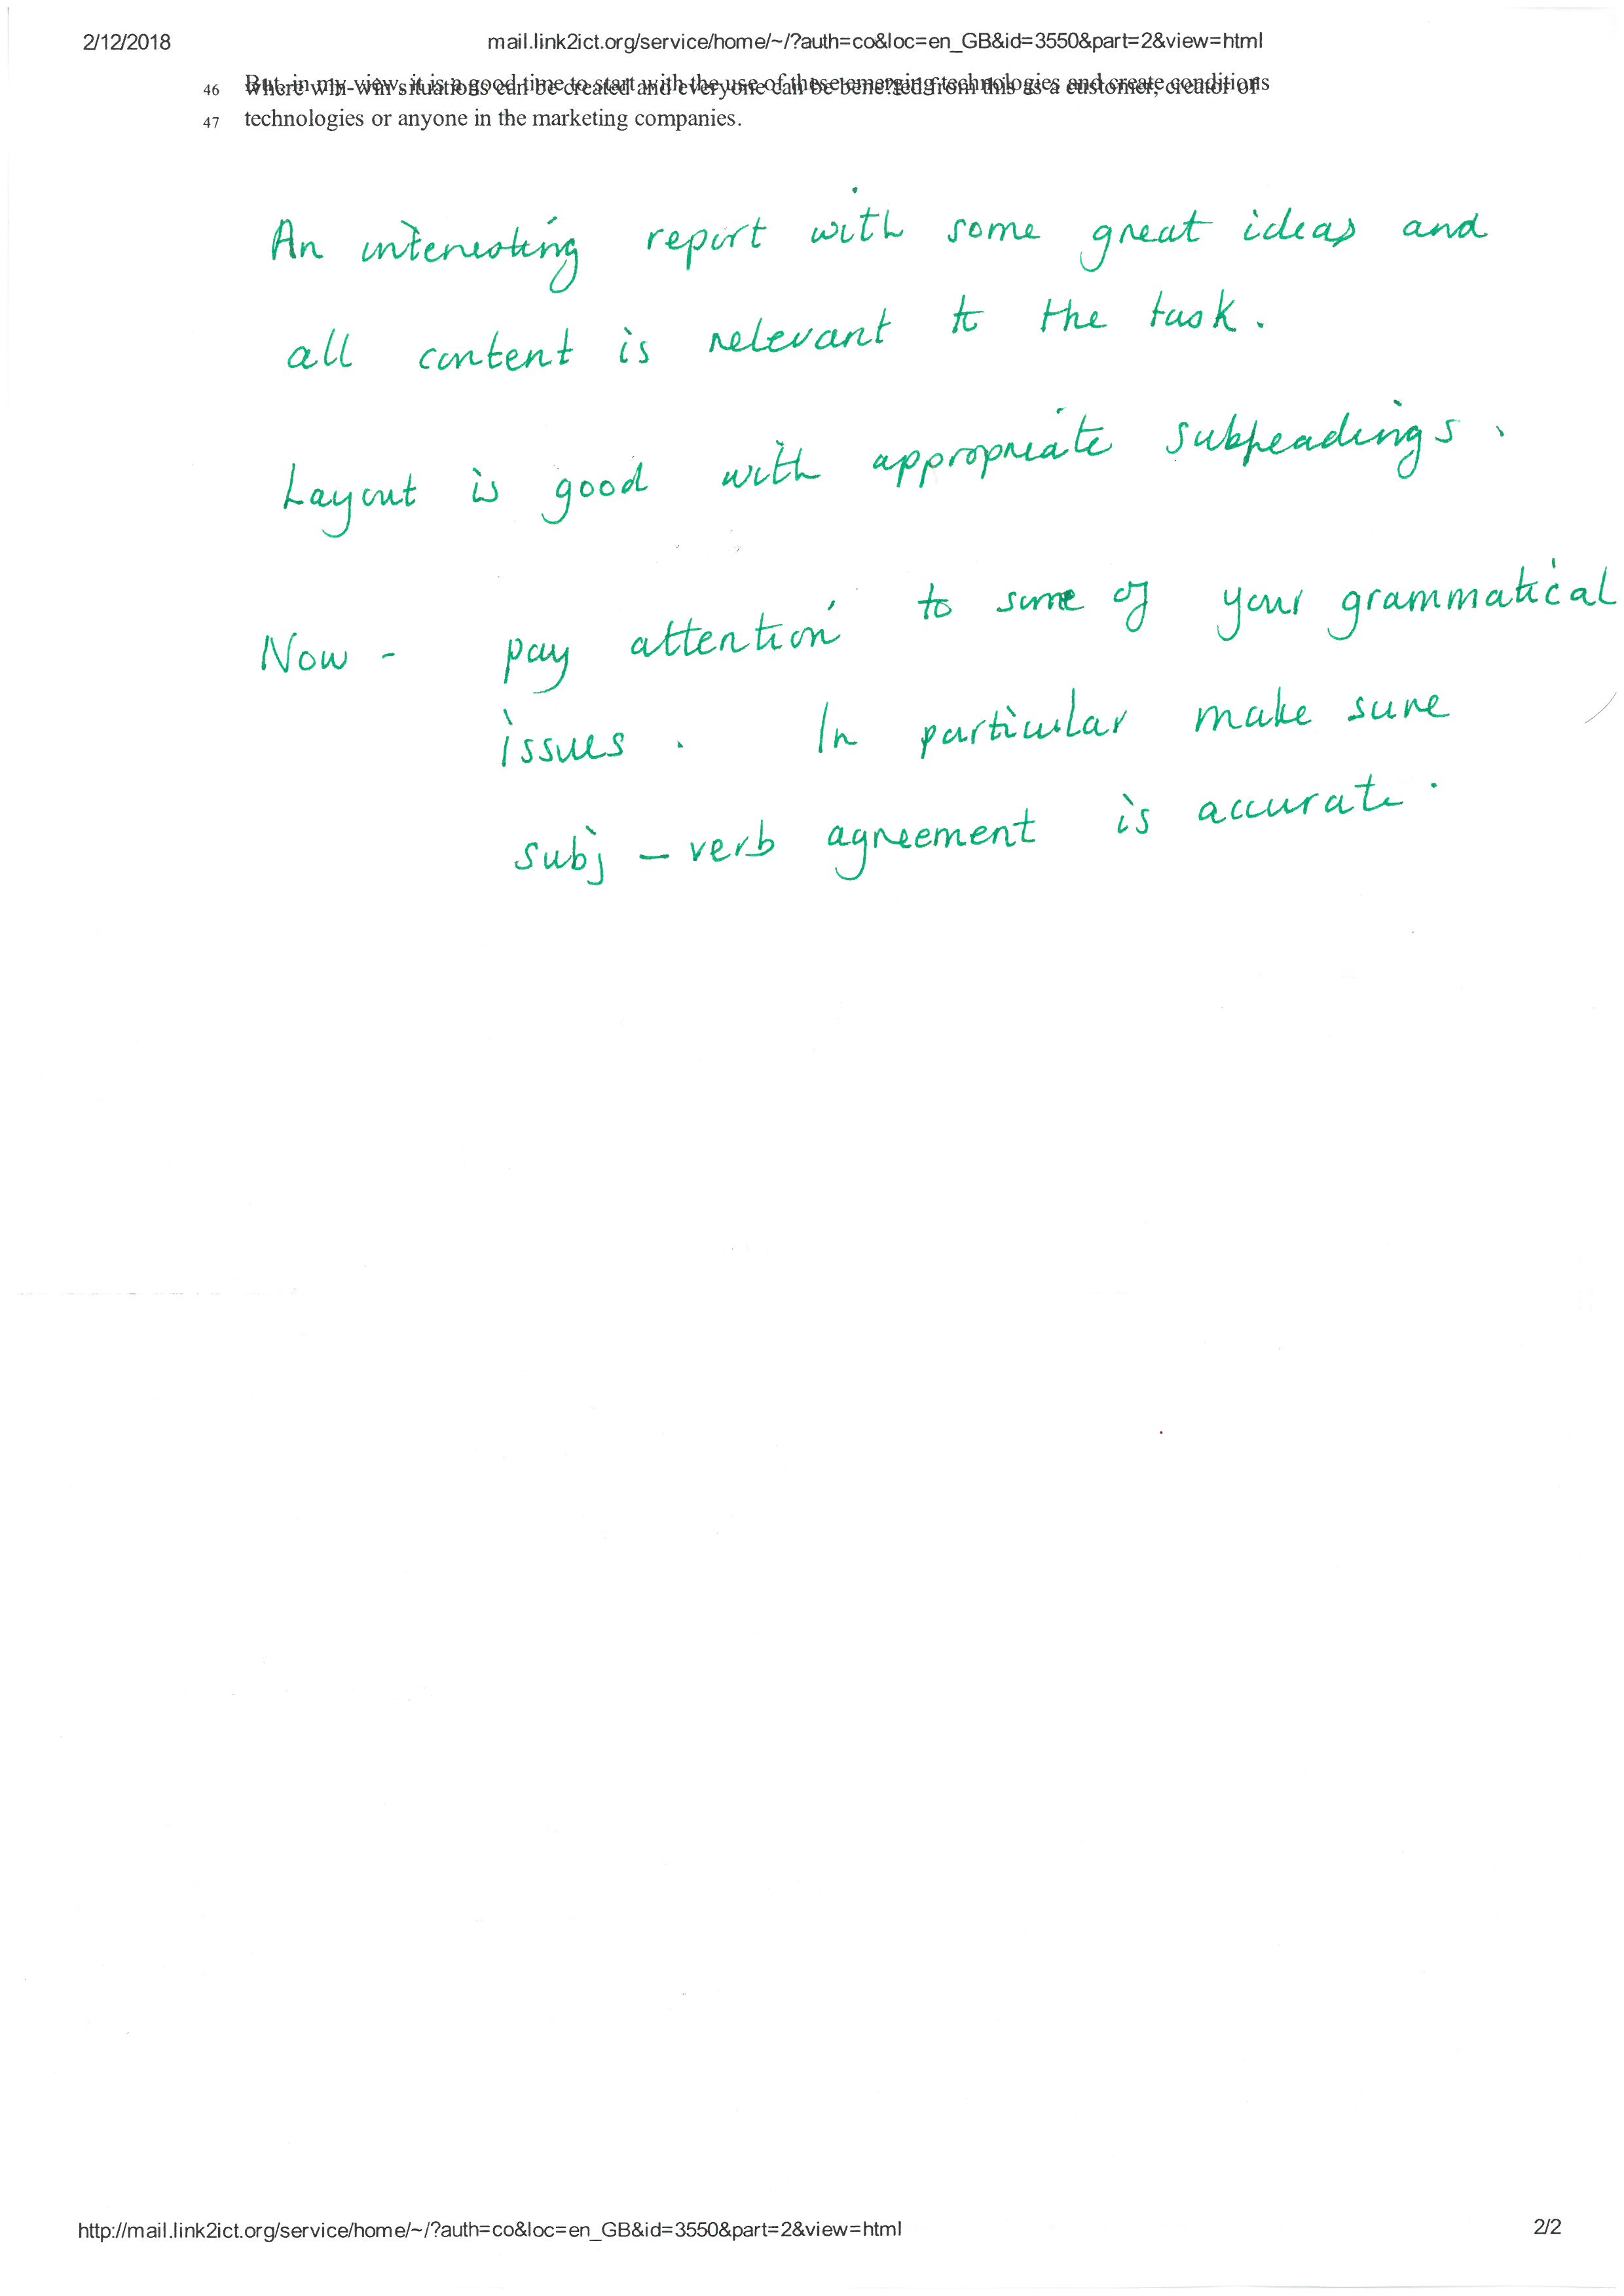 2/12/2018 mail.link2ict.org/service/home/~/?auth=co&loc=en_GB&id=3550&part=2&view=html
46 But, in my view, it is a good time to start with the use of these emerging technologies and create conditions
Where win-win situations can be created and everyone can be bene?ted from this as a customer, creator of
47 technologies or anyone in the marketing companies.
An interesting report with some great ideas and
all content is relevant to the task.
Layout is good with appropriate subheadings.
Now - pay attention to some of your grammatical
issues. In particular make sure
subj - verb agreement is accurate.
http://mail.link2ict.org/service/home/~/?auth=co&loc=en_GB&id=3550&part=2&view=html 2/2